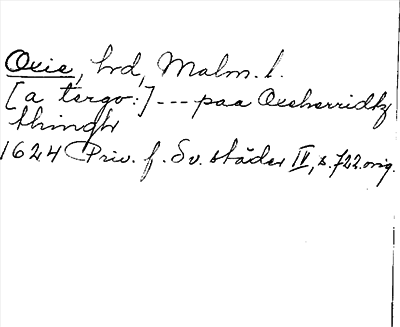 Oxie, hrd, Malm. l.
[a tergo:] --- paa Oxeherridtz
thingh
1624 Priv. f. Sv. städer IV, s. 722. orig.